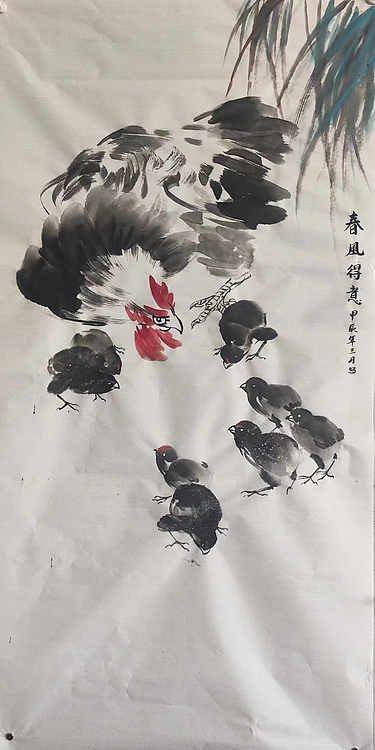 春風得意
甲辰年三月写